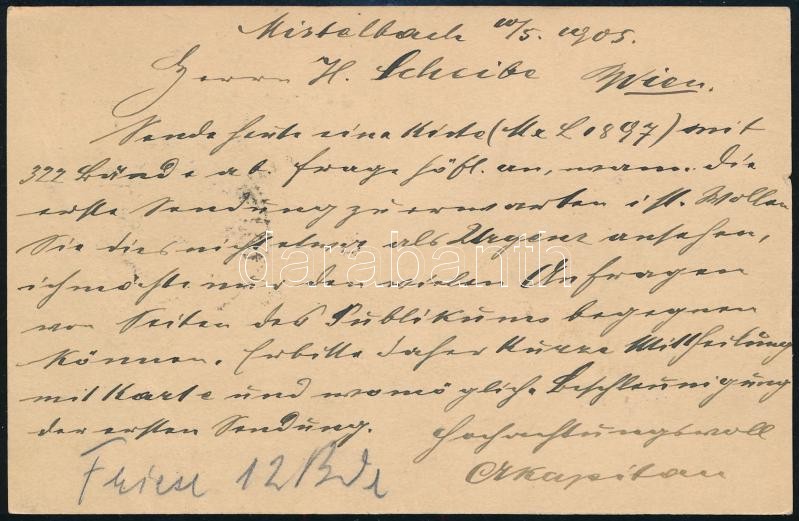 Mistelbach 10/5. 1905.
Herrn H. Scheibe Wien.
Sende heute eine Kiste (Mx L 1897) mit
322 Bände ab. frage höfl. an, wann die
erste Sendung zu erwarten ist. Wollen
Sie dies nicht etwa als Urgenz ansehen,
ich möchte nur den vielen Anfragen
von Seiten des Publikums begegnen
können. Erbitte daher kurze Mittheilung
mit Karte und womögliche Beschleunigung
der ersten Sendung.
Hochachtungsvoll
12 Bde
darabanth